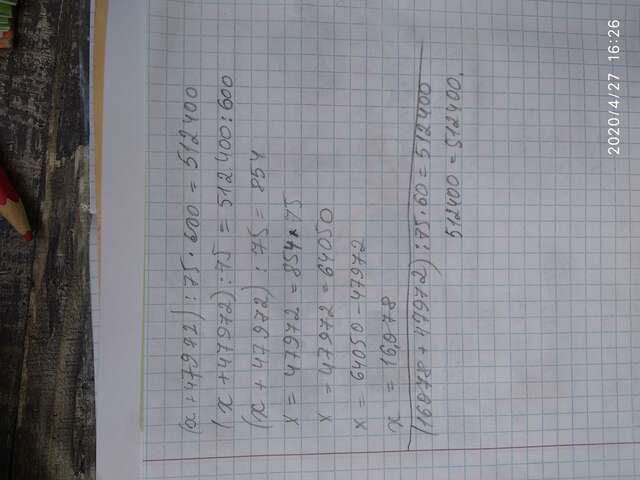 (x+47972):75·600=512400
(x+47972):75=512400:600
(x+47972):75=854
x=47972=854*75
x=47972=64050
x=64050-47972
x=16,078
(16078+47972):75·60=512400
512400=512400.
2020/4/27 16:26